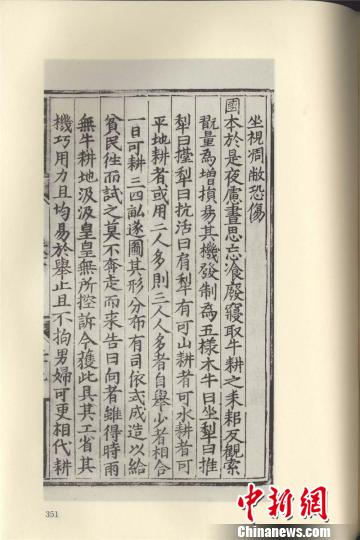 坐視凋敝恐傷
國本於是夜慮晝思忘飡廢寢取牛耕之耒耜反觀索
翫量為增損易其機發制為五樣木牛曰坐犁曰推
犁曰擡犁曰抗活曰肩犁有可山耕者可水耕者可
平地耕者或用二人多則三人人多者自舉少者相合
一日可耕三四畝遂圖其形分布有司依式成造以給
貧民往而試之莫不奔走而來告曰向者雖得時雨
無牛耕地汲汲皇皇無所控訴今獲此具其工省其
機巧用力且均易於舉止且不拘男婦可更相代耕
351
中新网
www.chinanews.com